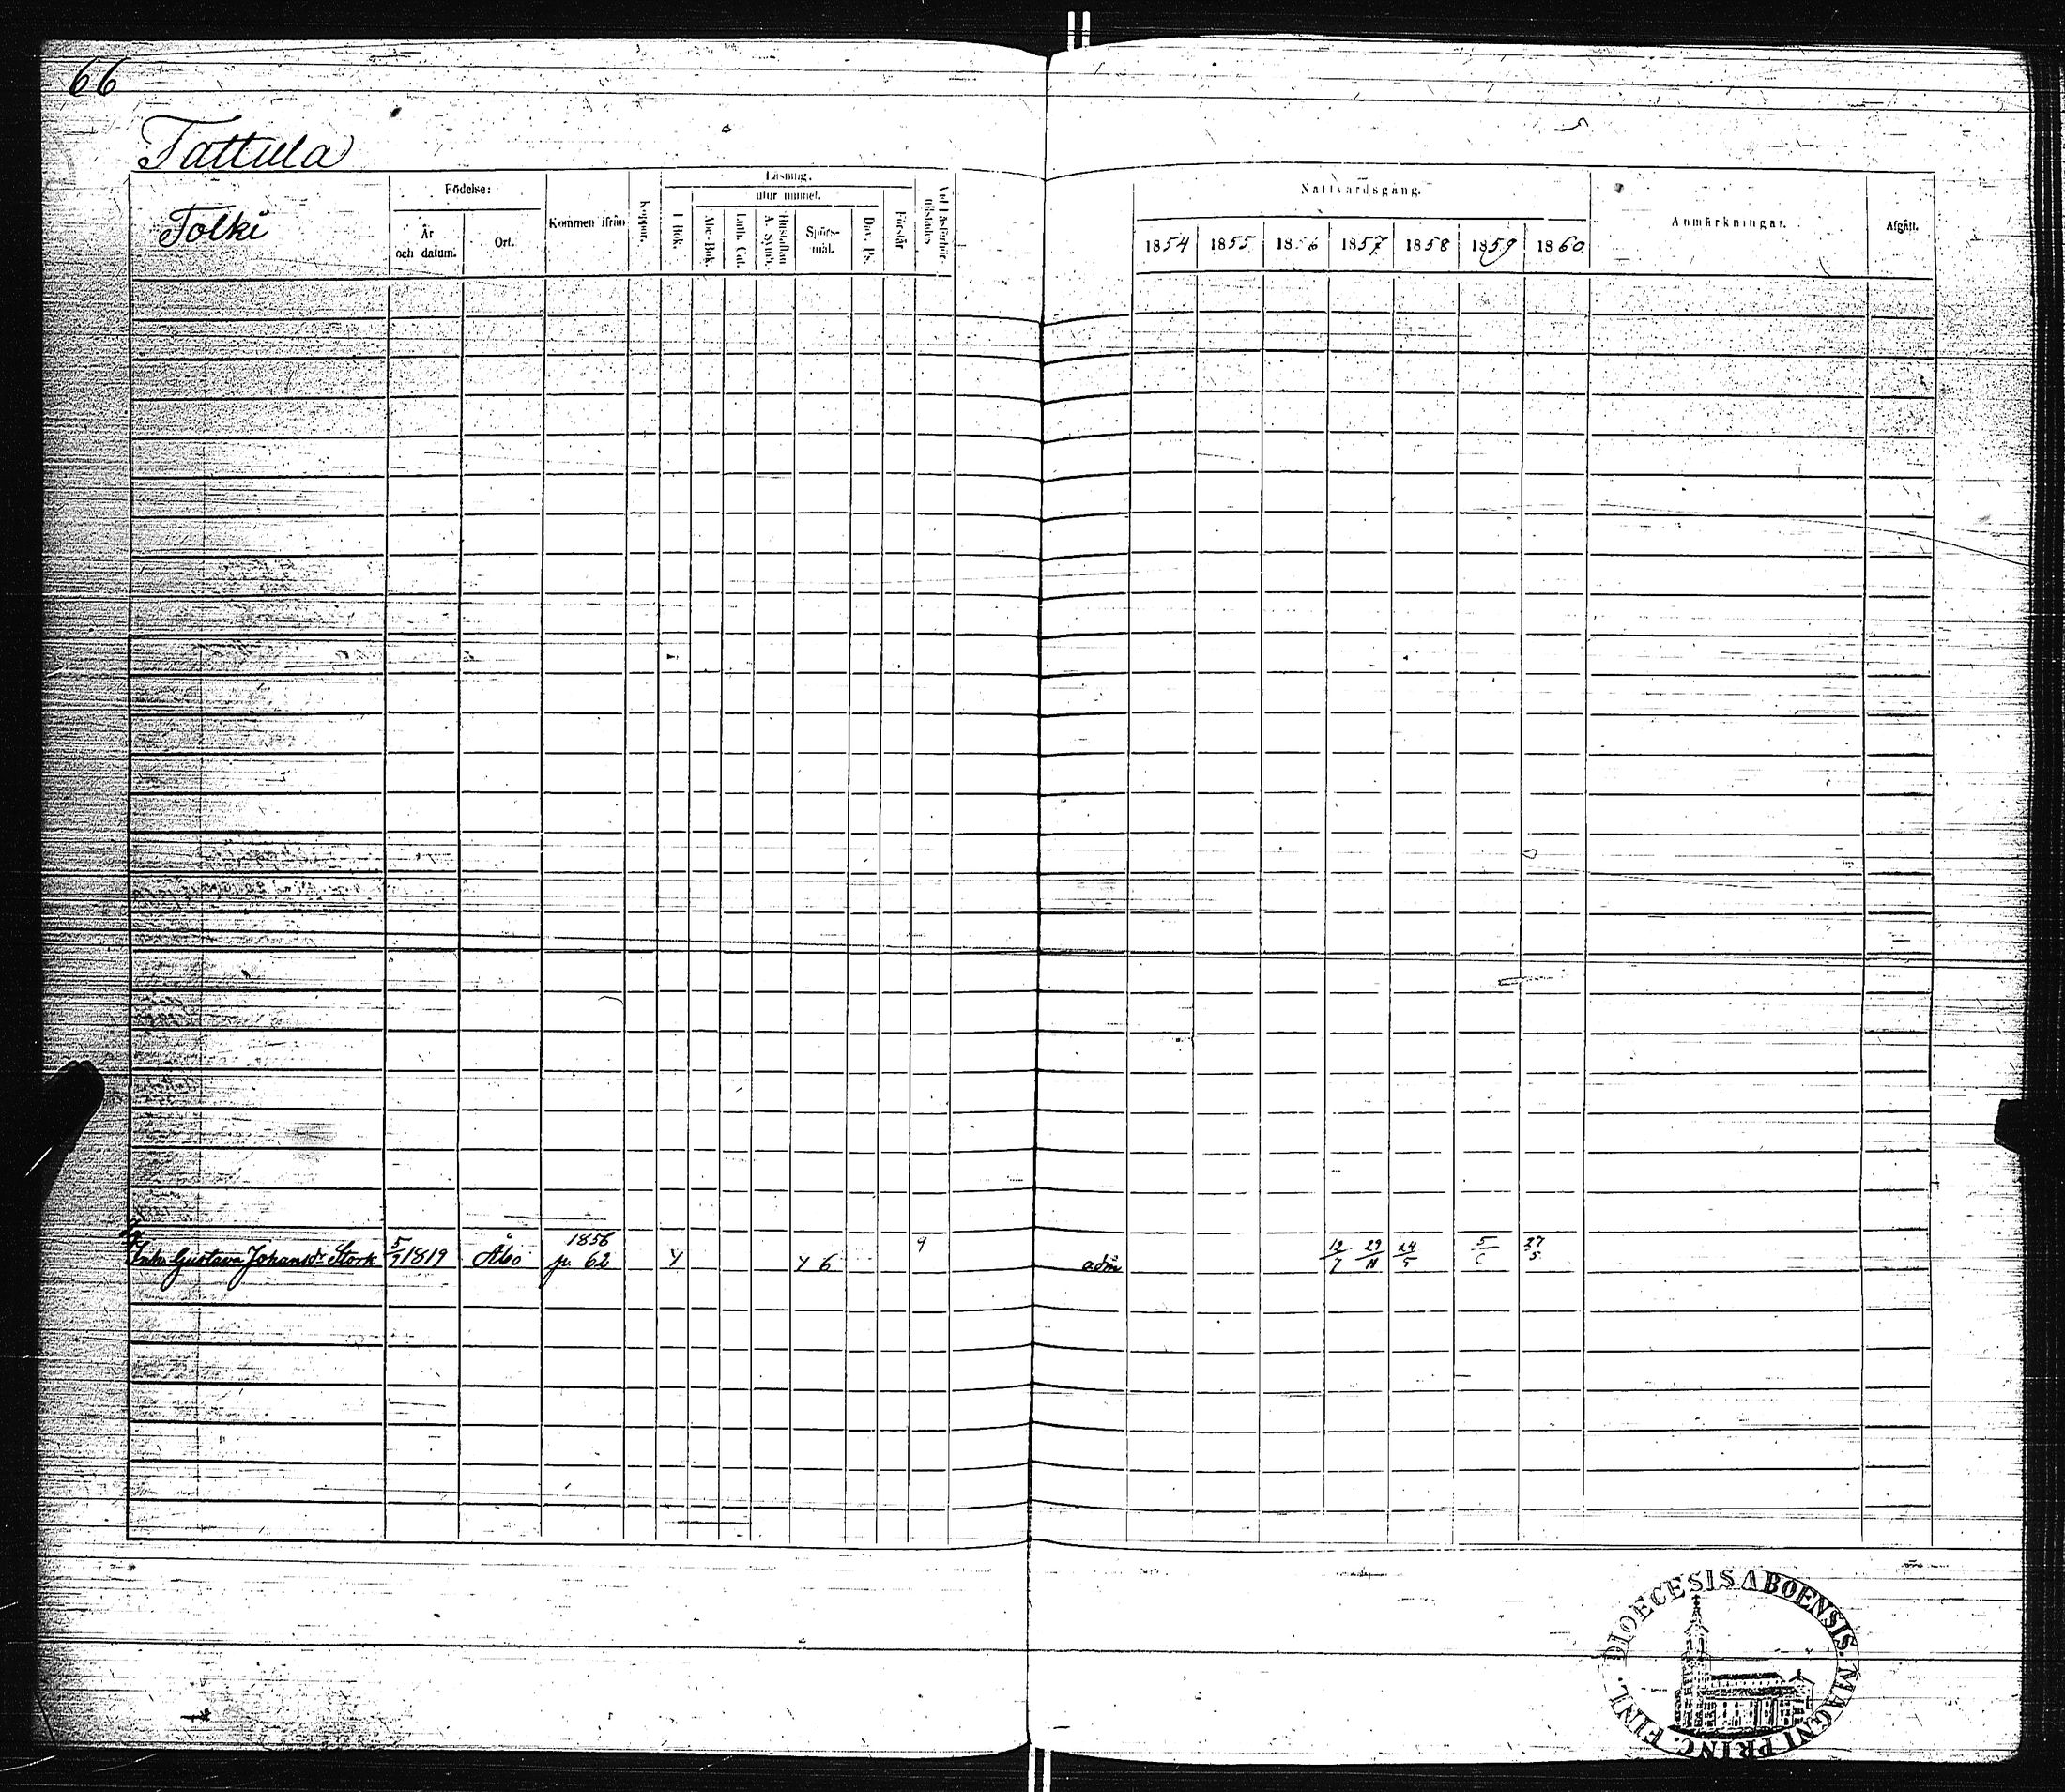 66
Tattula
Tolki
Födelse:
År
och datum.
Ort.
Kommen ifrån
Koppor.
Läsning.
I Bok.
utur minnet.
Abc-Bok.
Luth. Cat.
Hustaflan
A. Symb.
Spörs-
mål.
Dav. Ps.
Förstår
Vid Läsförhör
tillstädes
Nattvardsgång.
1854 1855 18 6 1857 1858 1859 1860
Anmärkningar.
Afgått.
Enka Gustava Johansdr Stork 5/9 1819 Åbo 1856 p. 62 Y Y 6 9 adm 12/7 29/11 24/5 5/ 27/5
DIOECESIS ABOENSIS. MAGNI PRINC. FINL.